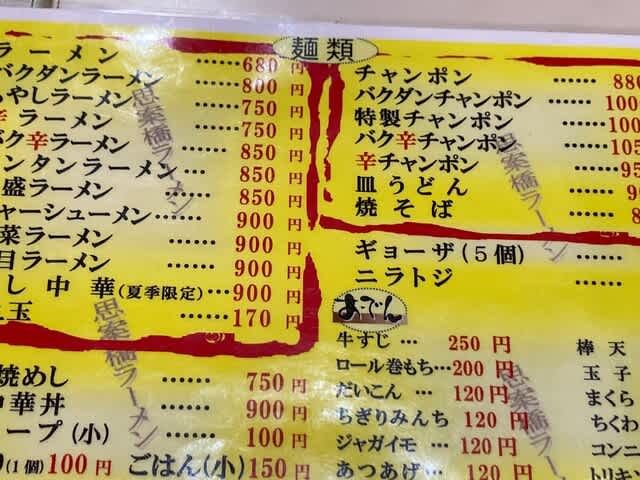 麺類
ラーメン ……680円
バクダンラーメン ……800円
もやしラーメン ……750円
辛ラーメン ……750円
バク辛ラーメン ……850円
ンタンラーメン …850円
盛ラーメン ……850円
ャーシューメン ……900円
菜ラーメン ……900円
目ラーメン ……900円
し中華(夏季限定)…900円
玉 ……170円
焼めし ……750円
中華丼 ……900円
ープ(小) ……100円
(1個)100円 ごはん(小)150円
チャンポン …… 880
バクダンチャンポン …… 100
特製チャンポン …… 100
バク辛チャンポン …… 105
辛チャンポン …… 95
皿うどん …… 9
焼そば …… 8
ギョーザ(5個) ……
ニラトジ ……
おでん
牛すじ … 250円
ロール巻もち…200円
だいこん … 120円
ちぎりみんち 120円
ジャガイモ … 120円
あつあげ … 120円
棒天
玉子
まくら
ちくわ
コンニ
トリキン
思案橋ラーメン
思案橋ラーメン
思案橋ラーメン
思案橋ラー